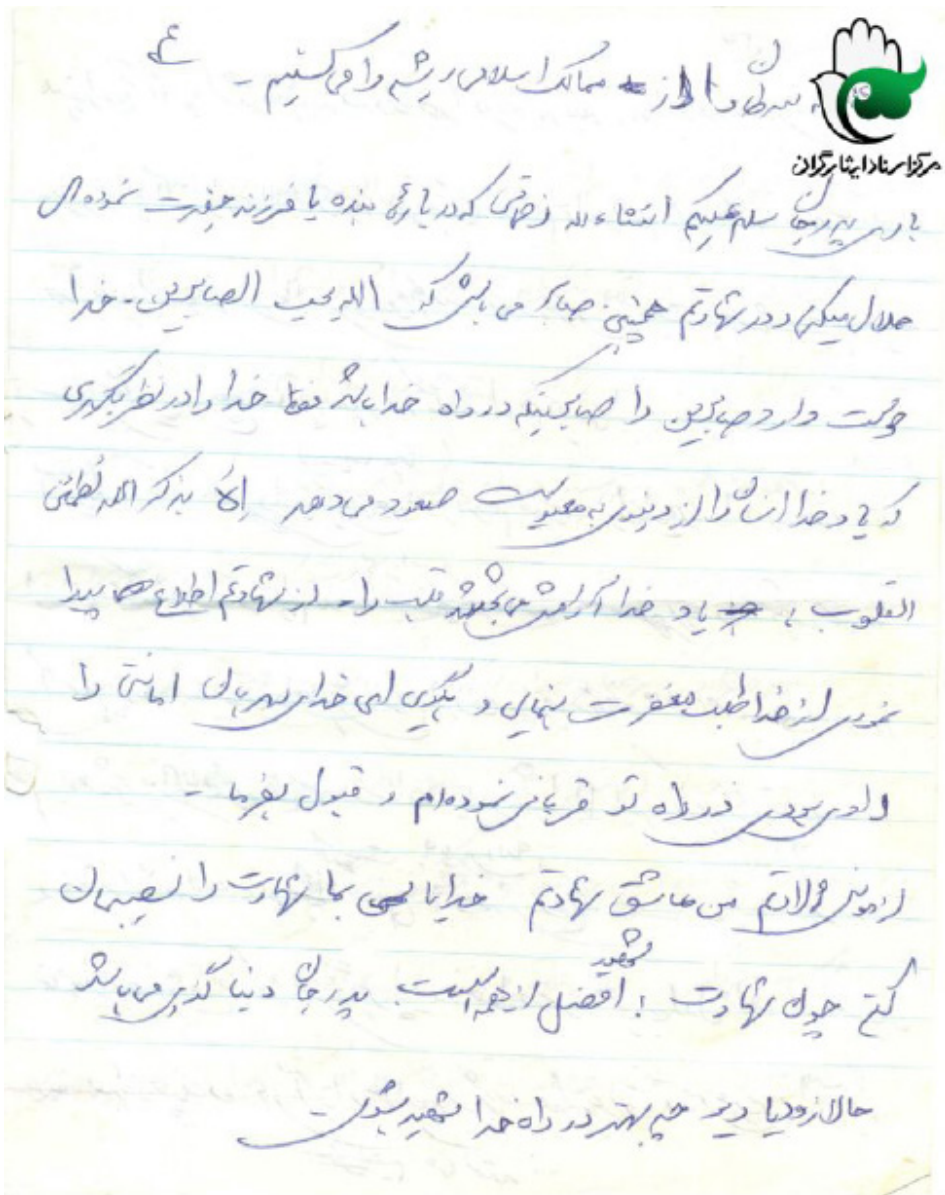 ۴
سرطان را از ممالک اسلامی ریشه را می‌کنیم -
مرکز اسناد ایثارگران
باری پدر جان سلام علیکم انشاءالله زحماتی که دربارهٔ بنده یا فرزند حقیرت نموده‌ای
حلال میکنی و در شهادتم همچنین صابر می باشی که الله یحب الصابرین - خدا
دوست دارد صابرین را صابرینیکه در راه خدا باشد فقط خدا را در نظر بگیری
که یاد خدا انسان را از به معنویت صعود می دهد إلا بذکر الله تطمئن
القلوب ؛ یاد خدا آرامش می بخشد قلب را - از شهادتم اطلاع پیدا
نمودی از خدا طلب مغفرت بنمایی و بگوی ای خدای مهربان امانتی را
دادی بودی در راه تو قربانی نموده‌ام و قبول بفرما -
من عاشق شهادتم خدایا بما شهادت را نصیبمان
کن چون شهادت ؛ شهید افضل از همه است پدر جان دنیا گذری می باشد
حالا زود یا دیر چه بهتر در راه خدا شهید بشوی -